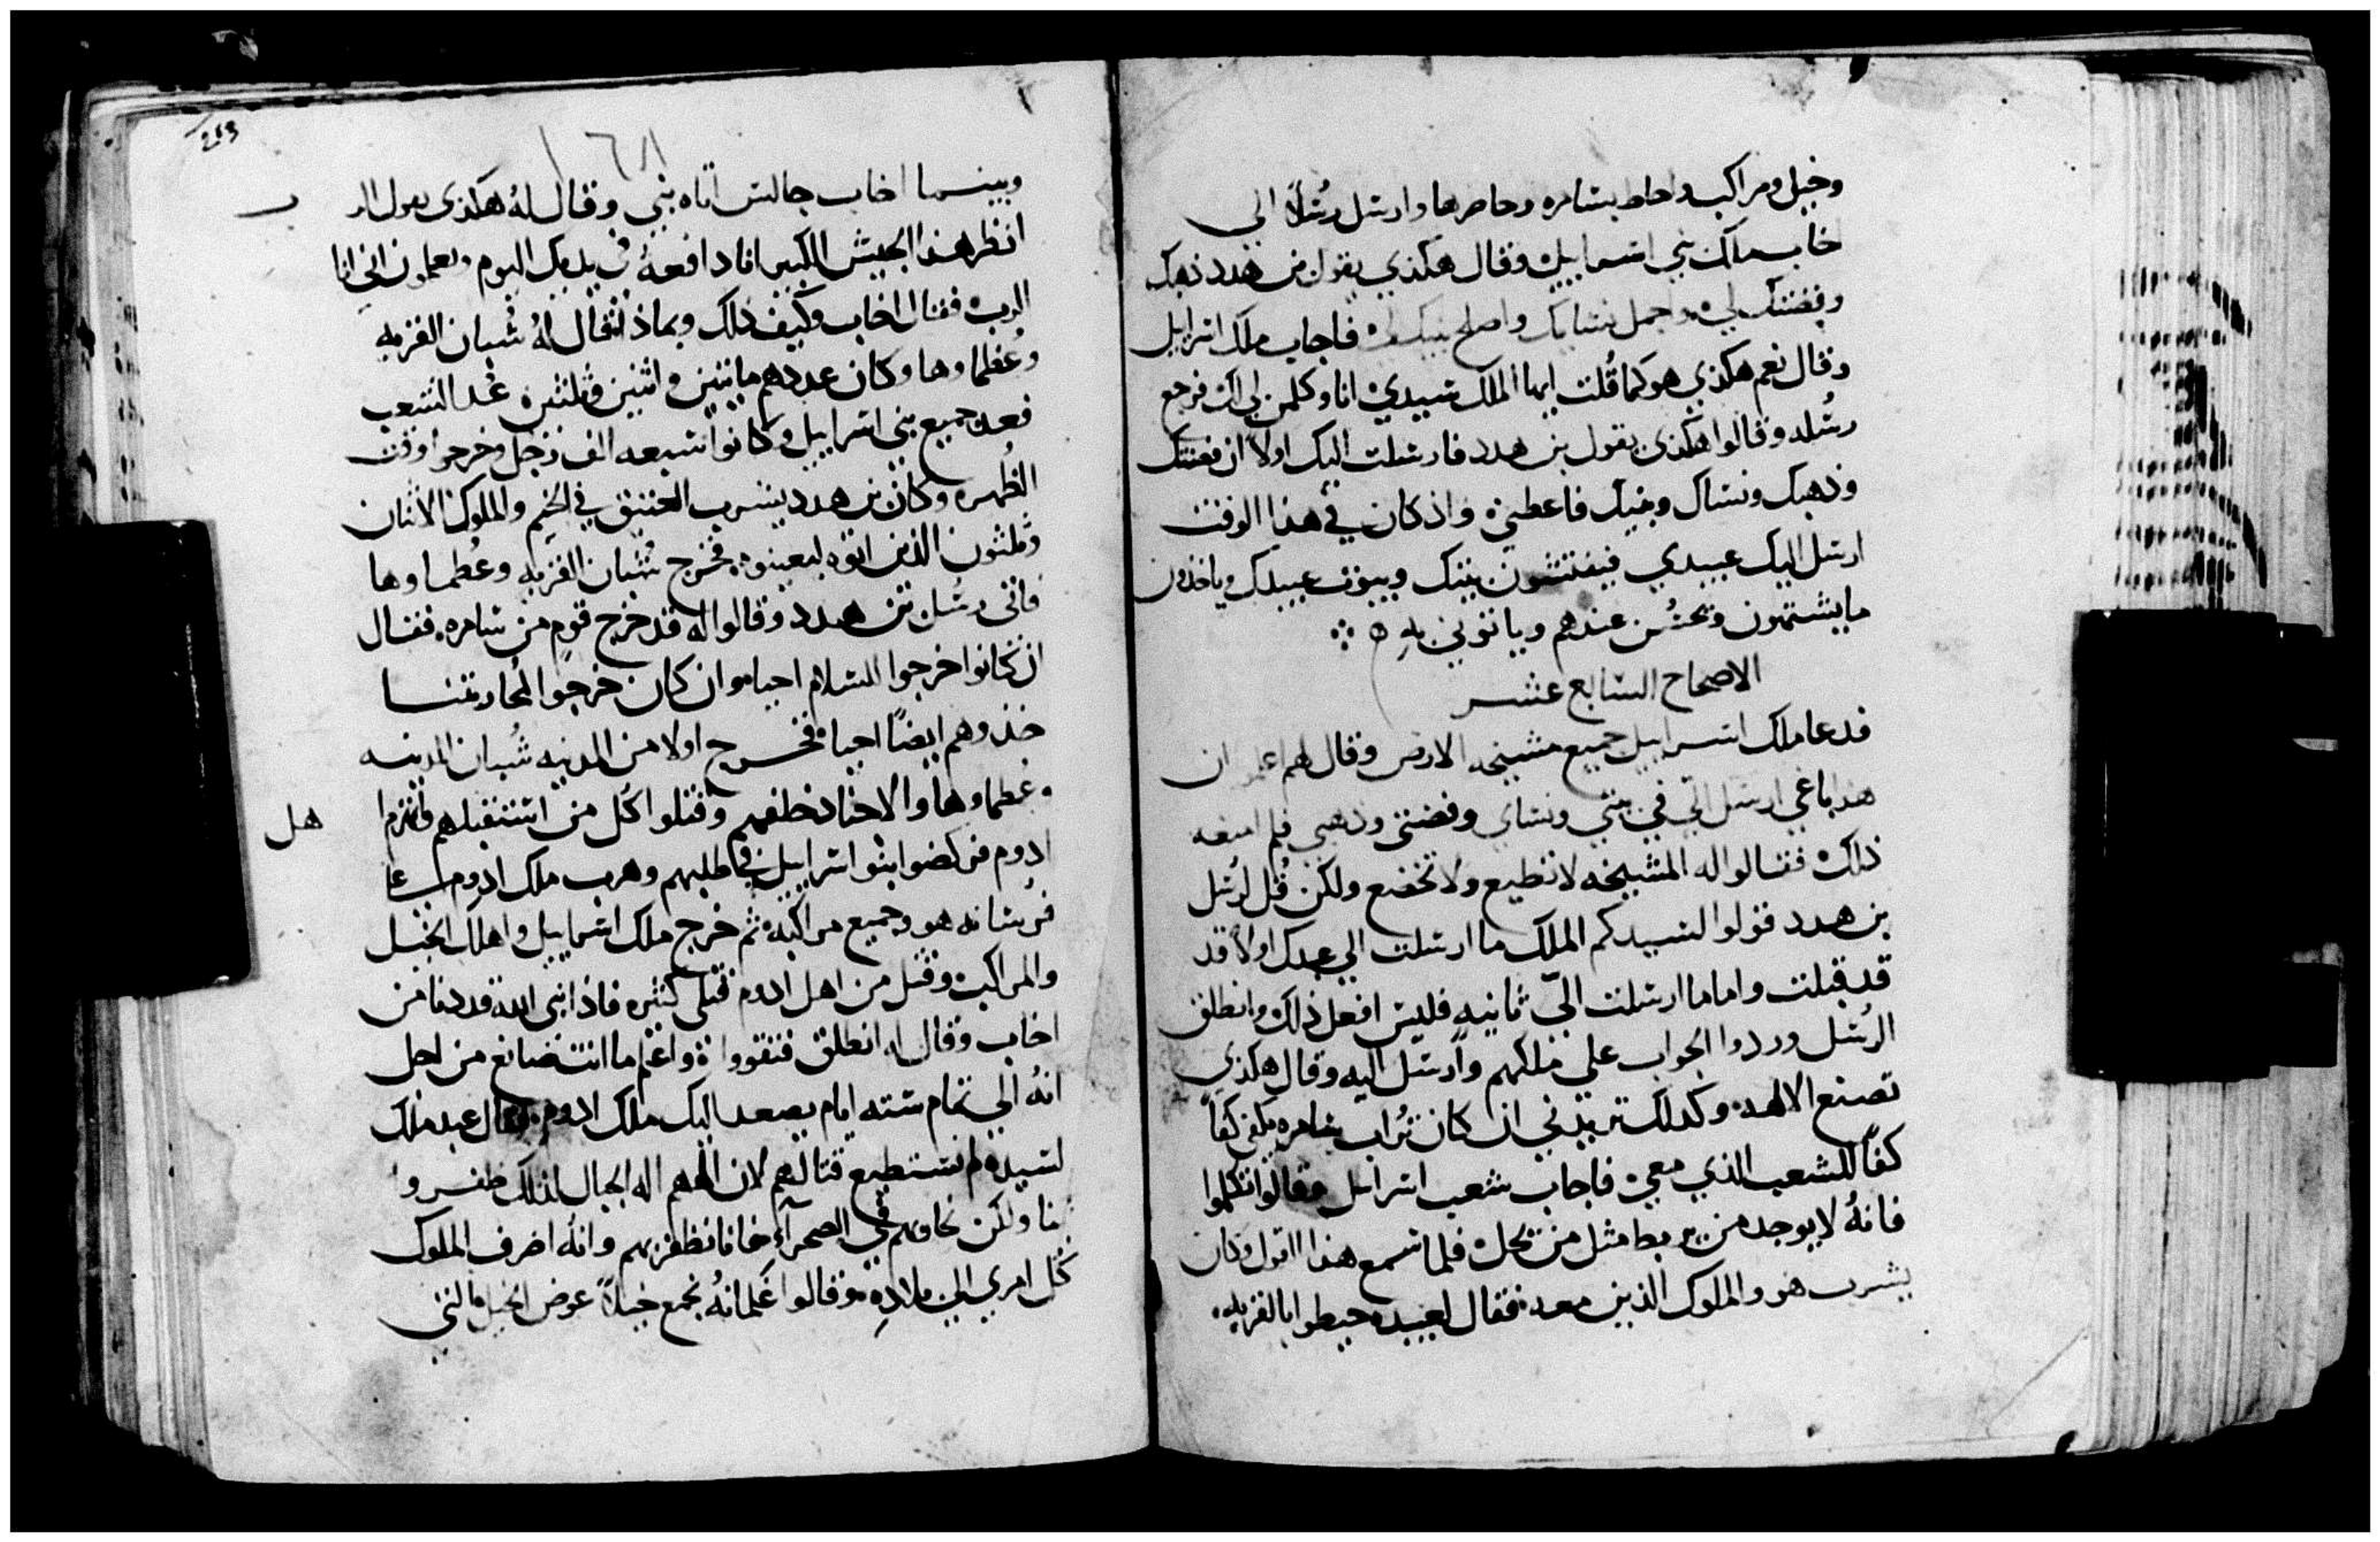 وخيل ومراكب واحاط بشامره وحاصرها وارسل رسُلاً الي
خاب ملك بني اسراييل وقال هكذي يقول بن هدد ذهبك
وفضتك لي واجمل نسايك واصلح بنيك لي فاجاب ملك اسراييل
وقال نعم هكذي هو كما قُلت ايها الملك سيدي انا وكلمن لي لك فرجع
رسُله وقالوا هكذي يقول بن هدد فارسلت اليك اولاً ان فضتك
وذهبك ونساك وبنيك فاعطيني واذ كان في هذا الوقت
ارسل اليك عبيدي فيفتشون بيتك وبيوت عبيدك وياخذون
ما يشتهون ويحسُن عندهم وياتوني به
الاصحاح السابع عشر
فدعا ملك اسراييل جميع مشيخه الارض وقال لهم اعلموا ان
هذا باغي ارسل الي في بيتي ونساي وفضتي وذهبي فلم امنعه
ذلك فقالوا له المشيخه لا تطيع ولا تخضع ولكن قُل لرُسل
بن هدد قولوا لسيدكم الملك ما ارسلت الي عبدك اولاً قد
قد قبلت واما ما ارسلت اليّ ثانيه فليس افعل ذلك وانطلق
الرُسل وردوا الجواب علي ملكهم وارسل اليه وقال هكذي
تصنع الالهه وكذلك تريدني ان كان تُراب شامره يكفي كفاً
كفاً للشعب الذي معي فاجاب شعب اسراييل وقالوا تكلموا
فانهُ لا يوجد من يربط مثل من يحل فلما سمع هذا القول وكان
يشرب هو والملوك الذين معه فقال لعبيده حيطوا بالقريه
263
١٦٨
وبينما اخاب جالس اتاه نبي وقال لهُ هكذي يقول الرب
انظر هذا الجيش الكبير انا دافعهُ في يديك اليوم وتعلمون اني انا
الرب فقال اخاب وكيف ذلك وبماذا فقال لهُ شُبان القريه
وعُظماوها وكان عددهم مايتين واثنين وثلثين عند الشعب
فعد جميع بني اسراييل وكانوا سبعه الف رجل وخرجوا وقت
الظُهره وكان بن هدد يشرب العتيق في الخيم والملوك الاثنان
وثلثون الذين اتوه ليعينوه فخرج شُبان القريه وعُظماوها
فاتي رسُل بن هدد وقالوا له قد خرج قوم من شامره فقال
ان كانوا خرجوا للسلام احيا وان كان خرجوا لمُحاربتنا
خذوهم ايضاً احيا فخرج اولا من المدنيه شُبان المدينه
وعُظماوها والاجناد خلفهم وقتلوا كُل من استقبلهم فانهزم
هل
ادوم فركضوا بنوا اسراييل في طلبهم وهرب ملك ادوم علي
فرسانه هو وجميع مراكبه ثم خرج ملك اسراييل واهلك الخيل
والمراكب وقتل من اهل ادوم قتلي كثيره فاذا نبي الله قد دنا من
اخاب وقال له انطلق فتقووا واعلم ما انت صانع من اجل
انهُ الي تمام سته ايام يصعد اليك ملك ادوم فقال عبد ملك
لسيده لم نستطيع قتالهم لان الههم اله الجبال لذلك ظفروا
بنا ولكن نحاربهم في الصحرآء فانا نظفر بهم وانهُ اصرف الملوك
كُل امري الي بلاده وقالوا غلمانهُ نجمع خيلاً عوض الخيل التي